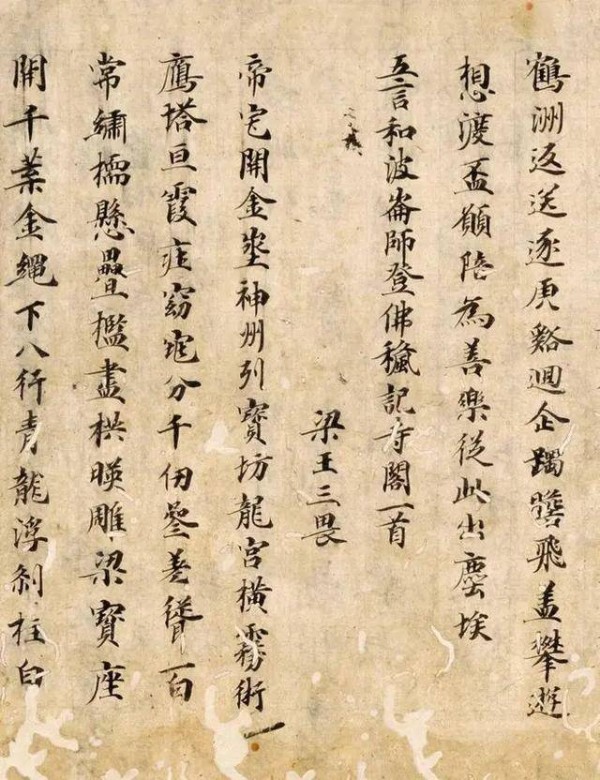 鶴洲返送逐庾谿迴企躅驂飛盖攀遊
想渡盃願陪為善樂從此出塵埃
五言和波崙師登佛龕記寺閣一首
梁王三畏
帝宅開金埊神州列寶坊龍宮橫霧術
鷹塔亘霞庄窈窕分千仞叄差聳一百
常繡櫺懸曡檻畫栱暎雕梁寶座
開千葉金繩下八行青龍浮剎柱白